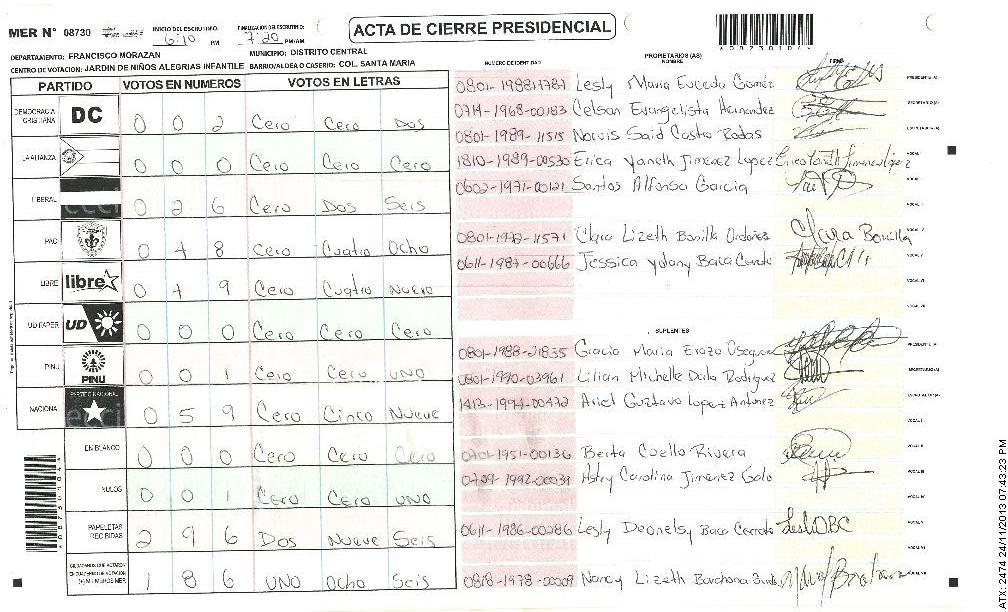 MER N° 08730
INICIO DEL ESCRUTINIO: 6:10 PM
FINALIZACION DEL ESCRUTINIO: 7:20 PM/AM
ACTA DE CIERRE PRESIDENCIAL
A08730104
DEPARTAMENTO: FRANCISCO MORAZAN MUNICIPIO: DISTRITO CENTRAL
CENTRO DE VOTACION: JARDIN DE NIÑOS ALEGRIAS INFANTILE BARRIO/ALDEA O CASERIO: COL. SANTA MARIA
PARTIDO VOTOS EN NUMEROS VOTOS EN LETRAS
DEMOCRACIA CRISTIANA DC 0 0 2 Cero Cero Dos
LA ALIANZA 0 0 0 Cero Cero Cero
LIBERAL 0 2 6 Cero Dos Seis
PAC 0 4 8 Cero Cuatro Ocho
LIBRE libre 0 4 9 Cero Cuatro Nueve
UD FAPER UD 0 0 0 Cero Cero Cero
PINU PINU 0 0 1 Cero Cero UNO
NACIONA PARTIDO NACIONAL 0 5 9 Cero Cinco Nueve
EN BLANCO 0 0 0 Cero Cero Cero
NULOS 0 0 1 Cero Cero UNO
PAPELETAS RECIBIDAS 2 9 6 Dos Nueve Seis
CIUDADANOS QUE VOTARON EN CUADERNO DE VOTACION (+) MIEMBROS MER 1 8 6 UNO Ocho Seis
NUMERO DE IDENTIDAD PROPIETARIOS (AS) NOMBRE FIRMA
0801-1988-11787 Lesly Maria Euceda Gomez PRESIDENTE (A)
0714-1968-00183 Celson Evangelista Hernandez SECRETARIO (A)
0801-1989-11515 Norvis Said Castro Rodas ESCRUTADOR (A)
1810-1989-00530 Erica Yaneth Jimenez Lopez Erica Yaneth Jimenez Lopez VOCAL I
0602-1971-00121 Santos Alfonso Garcia
0801-1972-11571 Clara Lizeth Bonilla Ordoñez Clara Bonilla
0611-1987-00666 Jessica Yolany Baca
SUPLENTES
0801-1988-21835 Gracia Maria Erazo PRESIDENTE (A)
0801-1990-03961 Lilian Michelle Rodriguez SECRETARIO (A)
1413-1994-00472 Ariel Gustavo Lopez Antunez ESCRUTADOR (A)
0701-1951-00136 Berta Coello Rivera
0709-1992-00039 Astry Carolina Jimenez Galo
0611-1986-00286 Lesly Deonelsy Baca
0818-1978-00009 Nancy Lizeth Barahona
A08730104
ATX: 2474 24/11/2013 07:43:23 PM